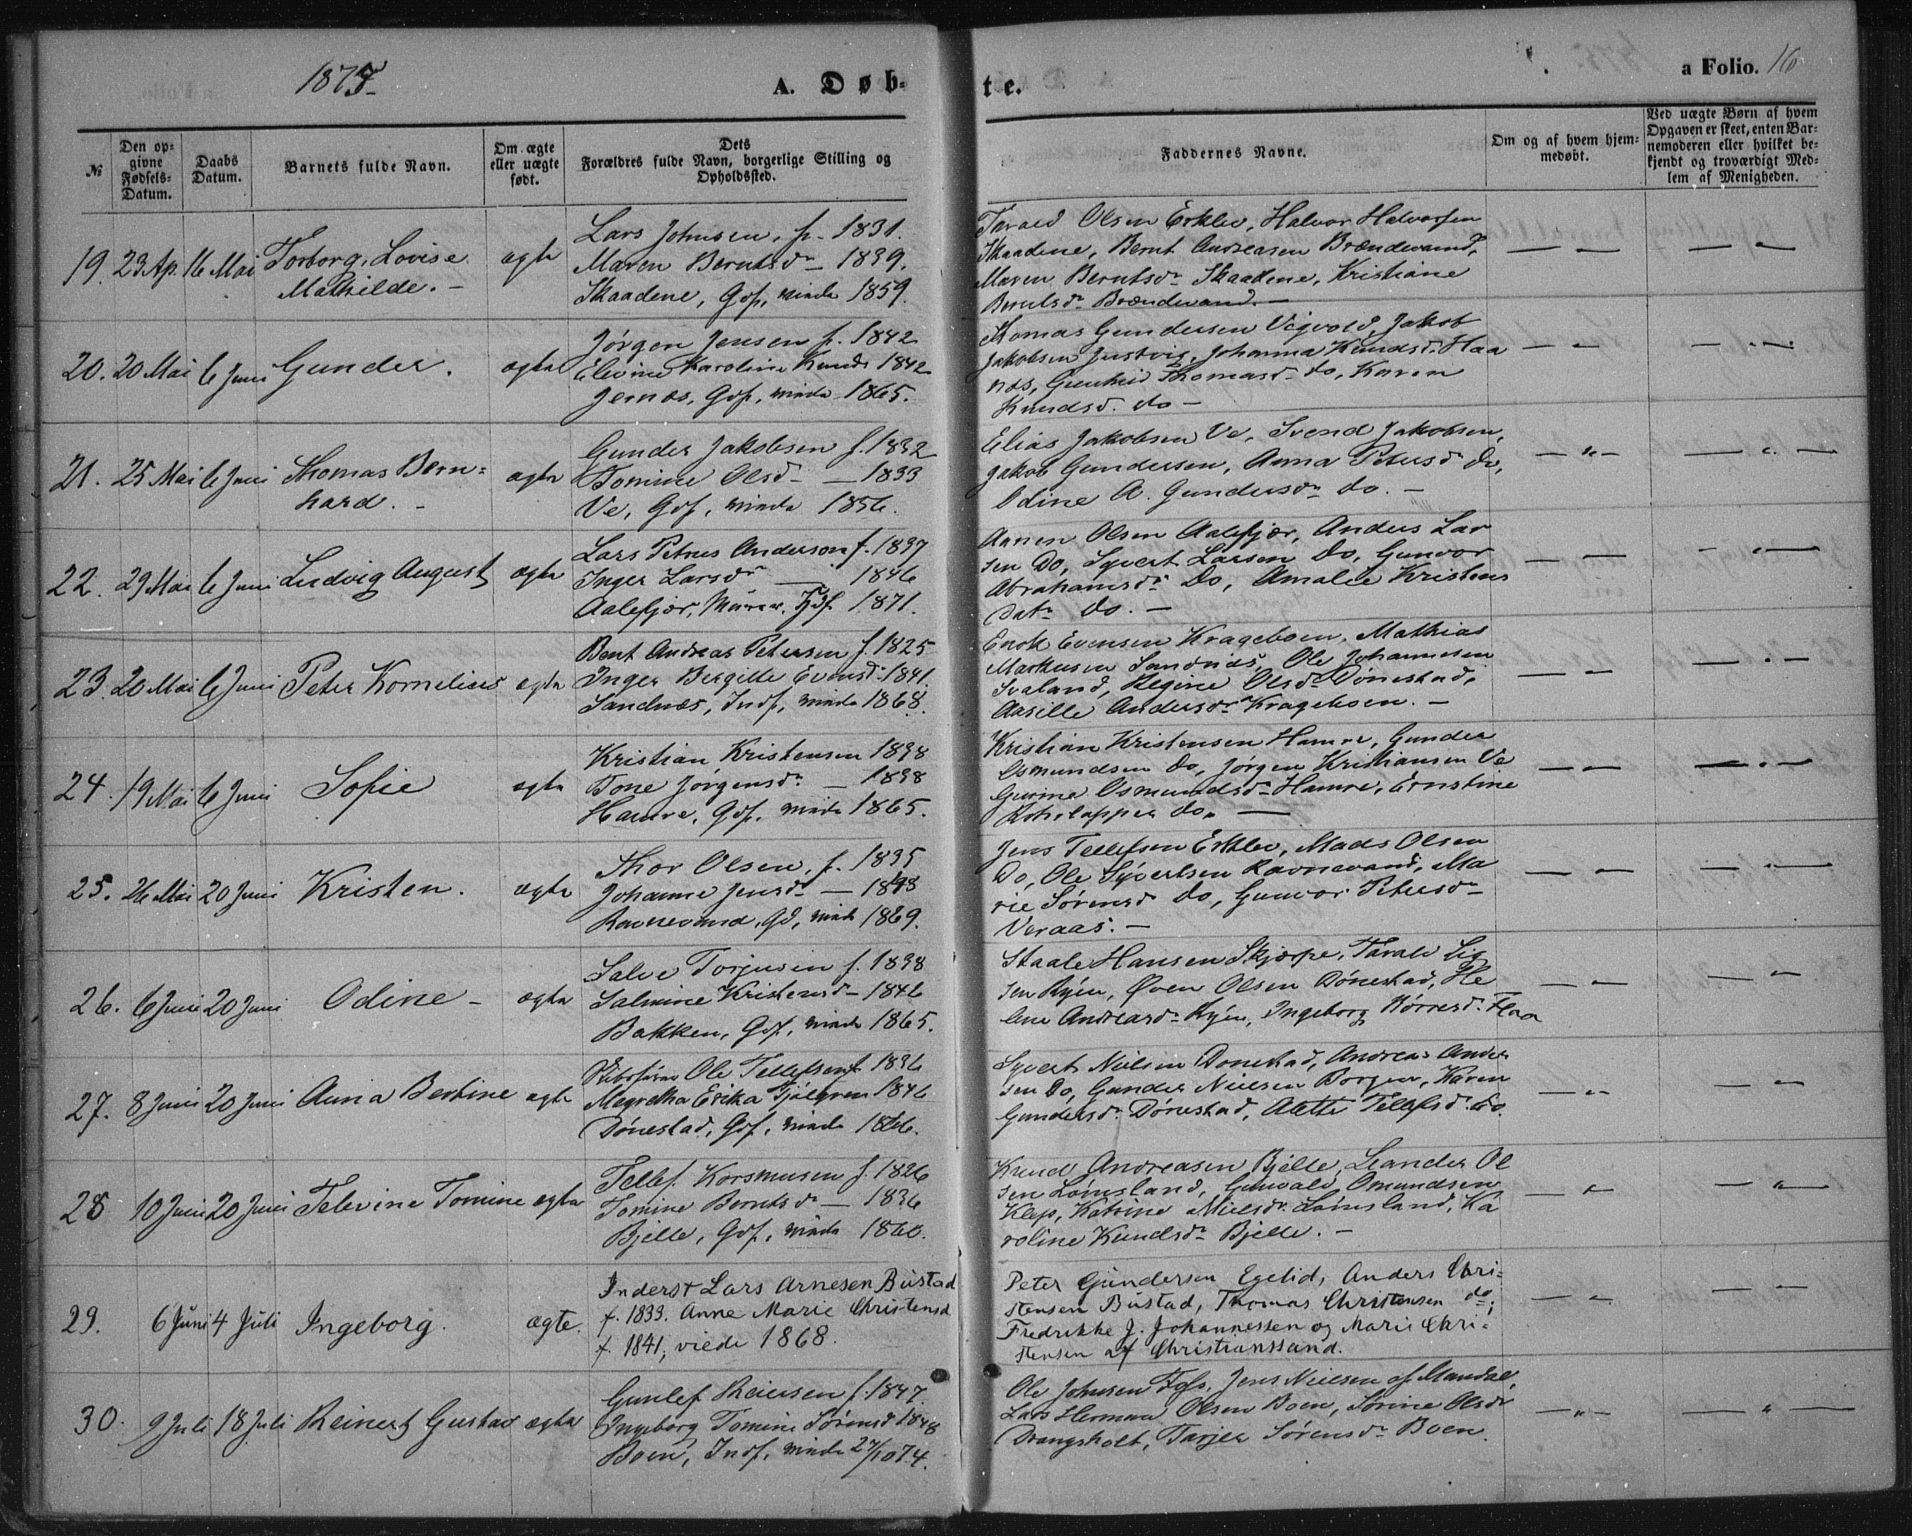 1875.
A. Døb-
te.
a Folio. 16
№
Den op-
givne
Fødsels-
Datum.
Daabs
Datum.
Barnets fulde Navn.
Om ægte
eller uægte
født.
Dets
Forældres fulde Navn, borgerlige Stilling og
Opholdssted.
Faddernes Navne.
Om og af hvem hjem-
medøbt.
Ved uægte Børn af hvem
Opgaven er skeet, enten Bar-
nemoderen eller hvilket be-
kjendt og troværdigt Med-
lem af Menigheden.
19. 23 Ap. 16 Mai Torborg Lovise
Mathilde. -
ægte
Lars Johnsen, f. 1831.
Maren Berntsdr - 1839.
Skaadene, Gdf, viede 1859.
Tarald Olsen Erklev, Halvor Halvorsen
Skaadene, Bernt Andreasen Brændevand,
Maren Berntsdr Skaadene, Kristiane
Berntsdr Brændevand. -
20. 20 Mai 6 Juni Gunder.
ægte
Jørgen Jensen f. 1842
Elevine Karoline Knuds 1842
Jernæs, Gdf, viede 1865.
Thomas Gundersen Vigvold, Jakob
Jakobsen Justvig, Johanna Knudsd. Haa
næs, Gunhild Thomasd. do, Karen
Knudsd. do -
21. 25 Mai 6 Juni Thomas Bern-
hard. -
ægte
Gunder Jakobsen f. 1832
Tomine Olsd - - 1833
Ve, Gdf, viede 1856.
Elias Jakobsen Ve, Svend Jakobsen,
Jakob Gundersen, Anna Petersd do,
Odine A. Gundersdr do. -
22. 29 Mai 6 Juni Ludvig August
ægte
Lars Petrus Anderson f. 1837
Inger Larsdr - 1846
Aalefjær, Murer, 1871.
Anen Olsen Aalefjær, Anders Lar
sen Do, Syvert Larsen Do, Gunvor
Abrahamsdr Do, Amalie Kristens
datr do. -
23. 20 Mai 6 Juni Peter Kornelius
ægte
Bent Andreas Petersen f. 1825
Inger Bergitte Evensd. 1841
Sandnæs, Indf, viede 1868.
Enok Evensen Krageboen, Mathias
Markusen Sandnæs, Ole Johannesen
Svaland, Regine Olsdr Dønestad,
Aasille Andersdr Krageboen. -
24. 19 Mai 6 Juni Sofie
ægte
Kristian Kristensen 1838
Tone Jørgensdr - 1838
Hamre, Gdf. viede 1865.
Kristian Kristensen Hamre, Gunder
Osmundsen do, Jørgen Kristiansen Ve
Gurine Osmundsd. Hamre, Ernstine
do.
25. 26 Mai 20 Juni Kristen.
ægte
Thor Olsen, f. 1835
Johanne Jensd. - 1838
Ravnevand, Gd, viede 1869.
Jens Tellefsen Erklev, Mads Olsen
Do, Ole Syvertsen Ravnevand, Ma
rie Sørensd Do, Gunvor Petersdr
Veraas. -
26. 6 Juni 20 Juni Odine -
ægte
Salve Torjusen f. 1838
Salmine Kristensd - 1846
Bakken, Gdf, viede 1865.
Staale Hansen Skjærpe, Tarald Sig
sen Ryen, Øven Olsen Dønestad, He
lene Andreasd. Ryen, Ingeborg Børresd. Flaa
27. 8 Juni 20 Juni Anna Bertine
ægte
Ole Tellefsen f. 1836
Megretha Erika Fjølgren 1846
Dønestad, Gdf, viede 1866.
Syvert Nielsen Donestad, Andreas Ander
sen Do, Gunder Nielsen Borgen, Karen
Gundersdr Dønestad, Alette Tellefsd. do.
28 10 Juni 20 Juni Televine Tomine
ægte
Tellef Korsmusen f. 1826
Tomine Berntsdr - 1836
Bjelle, Gdf, viede 1860.
Knud Andreasen Bjelle, Leander Ol
sen Lømsland, Gunvald Omundsen
Klep, Katrine Nielsdr Lømsland, Ka
roline Knudsdr Bjelle. -
29. 6 Juni 4 Juli Ingeborg.
ægte.
Inderst Lars Arnesen Bústad
f. 1833. Anne Marie Christensd
f. 1841, viede 1868.
Peter Gündersen Egelid, Anders Chri-
stensen Bústad, Thomas Christensen do;
Fredrikke J. Johannessen og Marie Chri-
stensen af Christianssand.
30. 9 Juli 18 Juli Reinert Gustav
ægte
Gunlef Reiersen f. 1847
Ingeborg Tomine Sørensd 1848
Boen, Indf, viede 27/10 74.
Ole Johnsen Foss, Jens Nielsen af Mandal,
Lars Herman Olsen Boen, Sørine Olsdr
Drangsholt, Tarjer Sørensdr Boen.